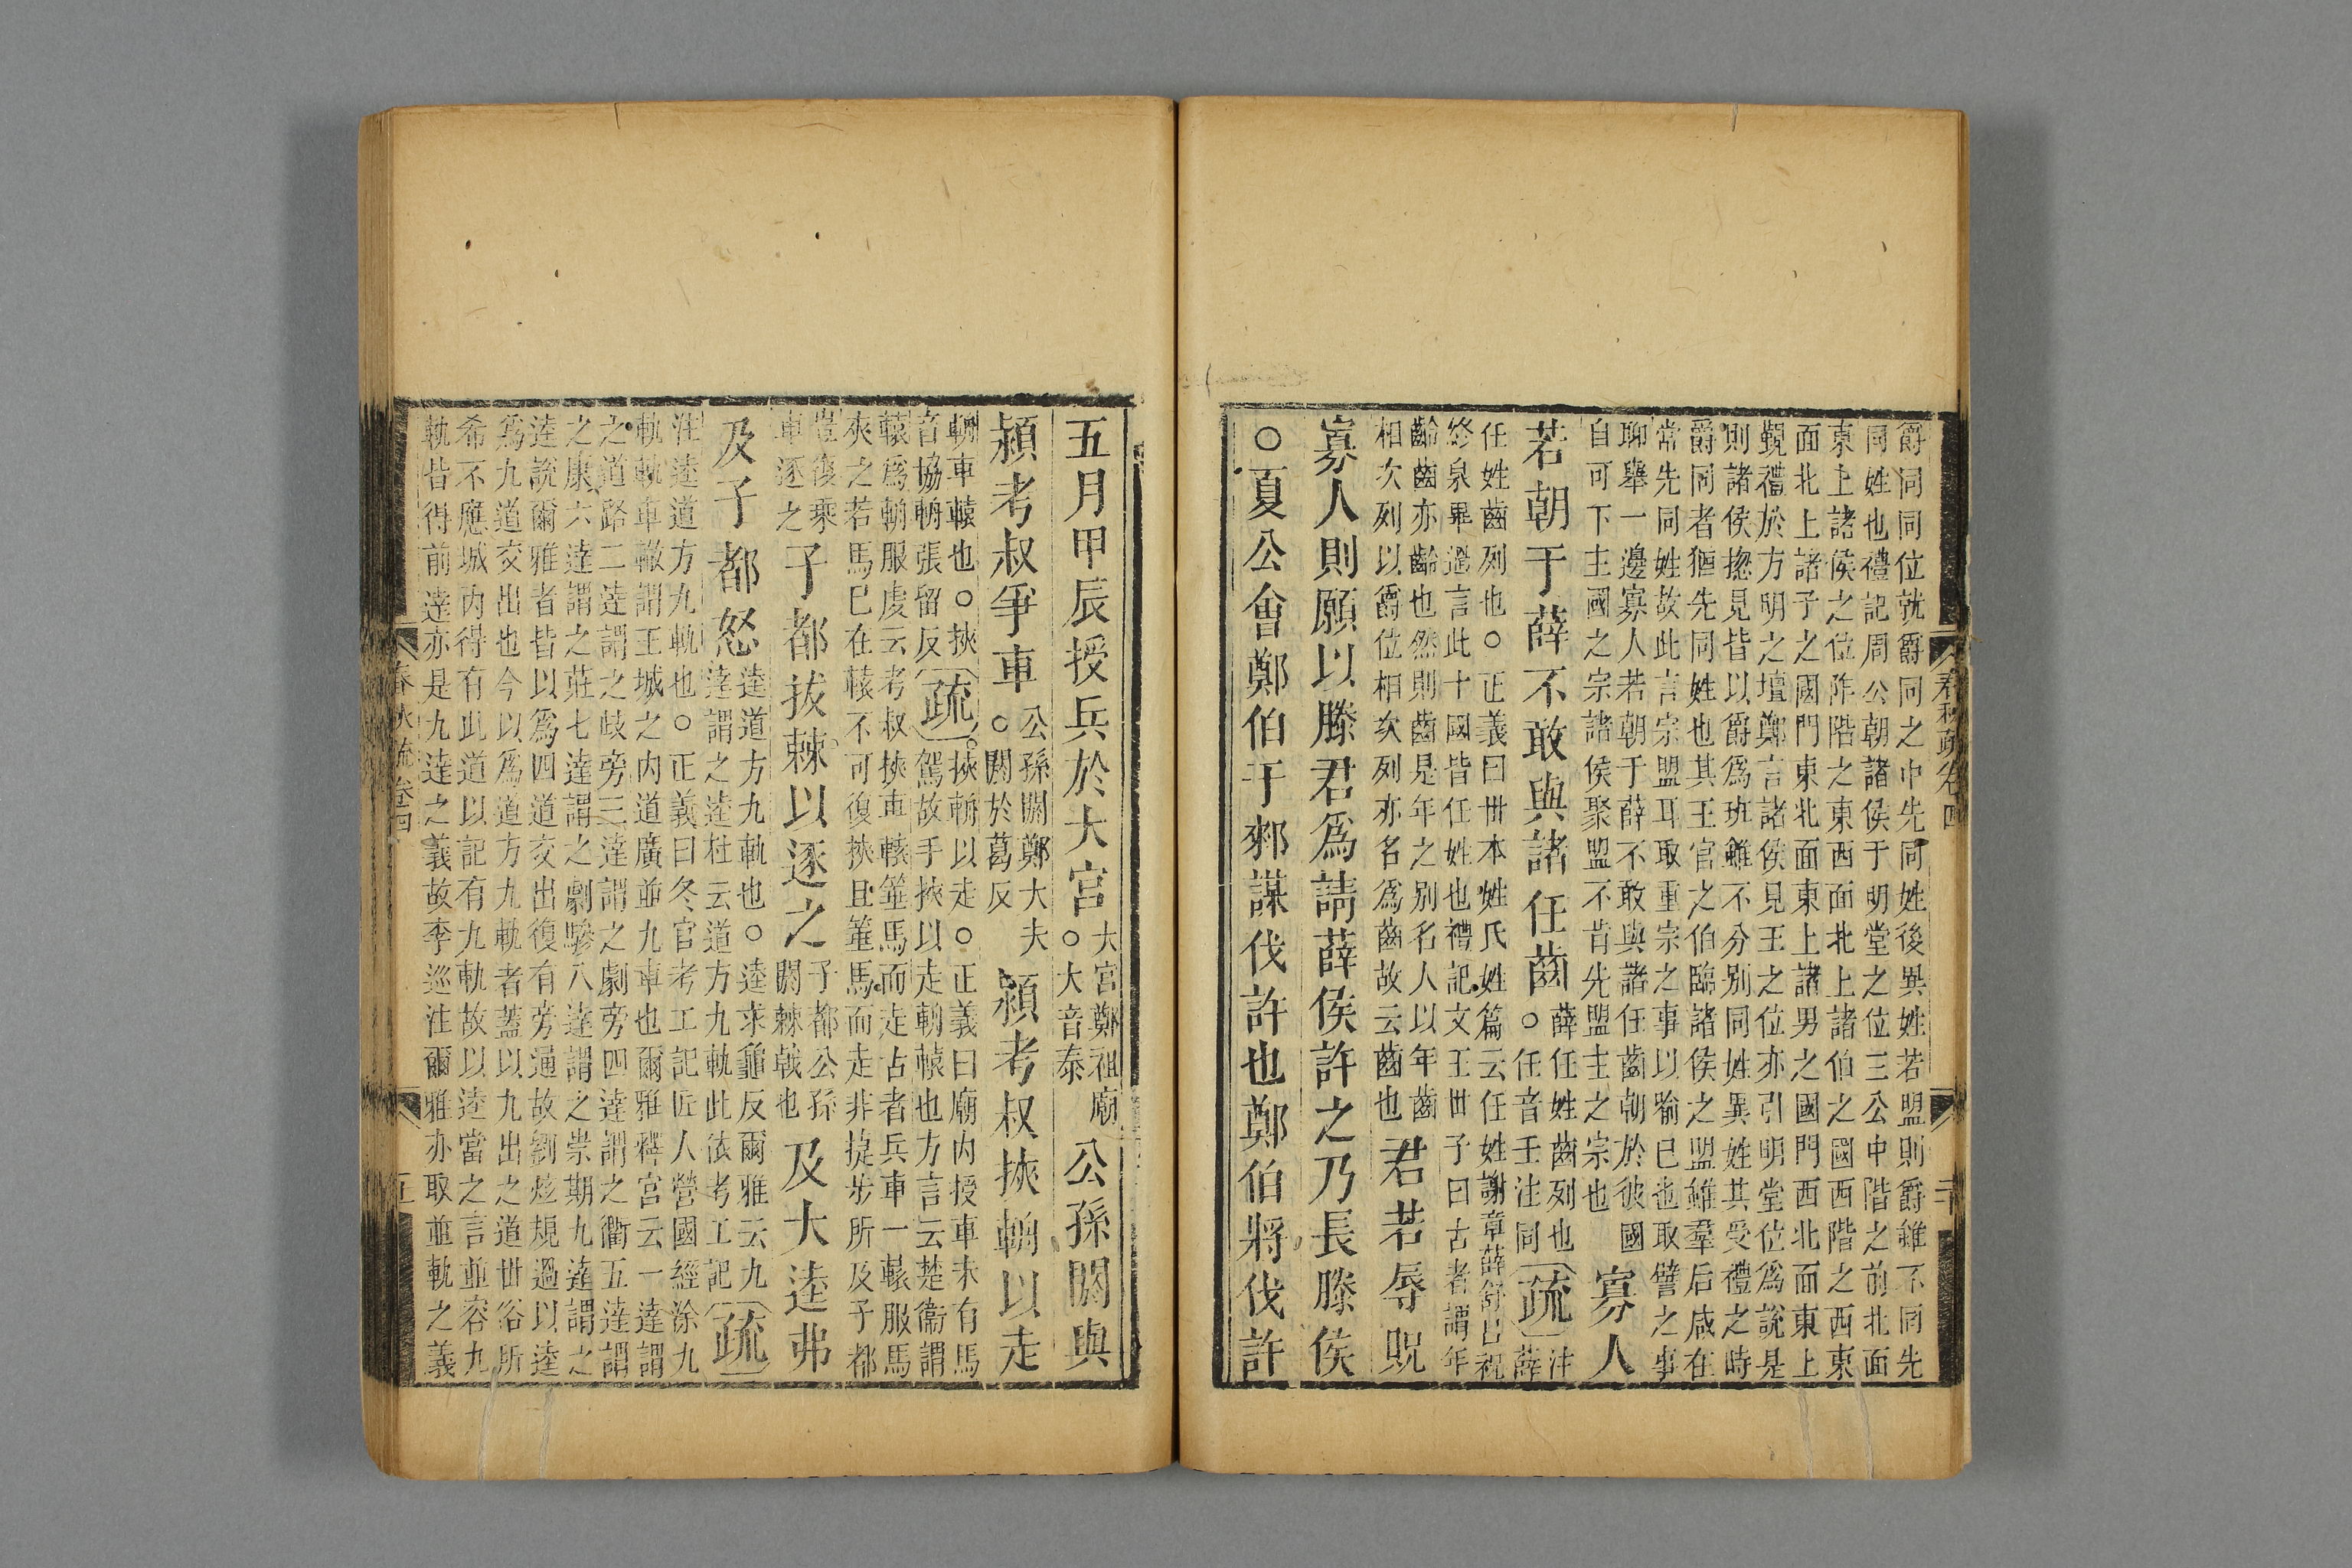 爵同同位就爵同之中先同姓後異姓若盟則爵雖不同先
同姓也禮記周公朝諸侯于明堂之位三公中階之前北面
東上諸侯之位阼階之東西面北上諸伯之國西階之西東
面北上諸子之國門東北面東上諸男之國門西北面東上
覲禮於方明之壇鄭言諸侯見王之位亦引明堂位爲說是
則諸侯揔見皆以爵爲班雖不分别同姓異姓其受禮之時
爵同者猶先同姓也其王官之伯臨諸侯之盟雖羣后咸在
常先同姓故此言宗盟耳取重宗之事以喻已也取譬之事
聊舉一邊寡人若朝于薛不敢與諸任齒朝於彼國
自可下主國之宗諸侯聚盟不肯先盟主之宗也
寡人
若朝于薛不敢與諸任齒
薛任姓齒列也
○任音壬注同
疏
注
薛
任姓齒列也○正義曰世本姓氏姓篇云任姓謝章薛舒吕祝
終泉畢過言此十國皆任姓也禮記文王世子曰古者謂年
齡齒亦齡也然則齒是年之别名人以年齒
相次列以爵位相次列亦名爲齒故云齒也
君若辱貺
寡人則願以滕君爲請薛侯許之乃長滕侯
○夏公會鄭伯于郲謀伐許也鄭伯將伐許
春秋疏卷四
五月甲辰授兵於大宮
大宮鄭祖廟
○大音泰
公孫閼與
潁考叔爭車
公孫閼鄭大夫
○閼於葛反
潁考叔挾輈以走
輈車轅也○挾
音協輈張留反
疏
挾輈以走○正義曰廟内授車未有馬
駕故手挾以走輈轅也方言云楚衞謂
轅爲輈服虔云考叔挾車轅箠馬而走古者兵車一轅服馬
夾之若馬已在轅不可復挾且箠馬而走非捷步所及子都
豈復乘
車逐之
子都拔棘以逐之
子都公孫
閼棘戟也
及大逵弗
及子都怒
逵道方九軌也○逵求龜反爾雅云九
達謂之逵杜云道方九軌此依考工記
疏
注逵道方九軌也○正義曰冬官考工記匠人營國經涂九
軌軌車轍謂王城之内道廣並九車也爾雅釋宮云一達謂
之道路二達謂之岐旁三達謂之劇旁四達謂之衢五達謂
之康六達謂之莊七達謂之劇驂八達謂之崇期九達謂之
逵說爾雅者皆以爲四道交出復有旁通故劉炫規過以逵
爲九道交出也今以爲道方九軌者蓋以九出之道世俗所
希不應城内得有此道以記有九軌故以逵當之言並容九
軌皆得前達亦是九達之義故李巡注爾雅亦取並軌之義
春秋疏卷四